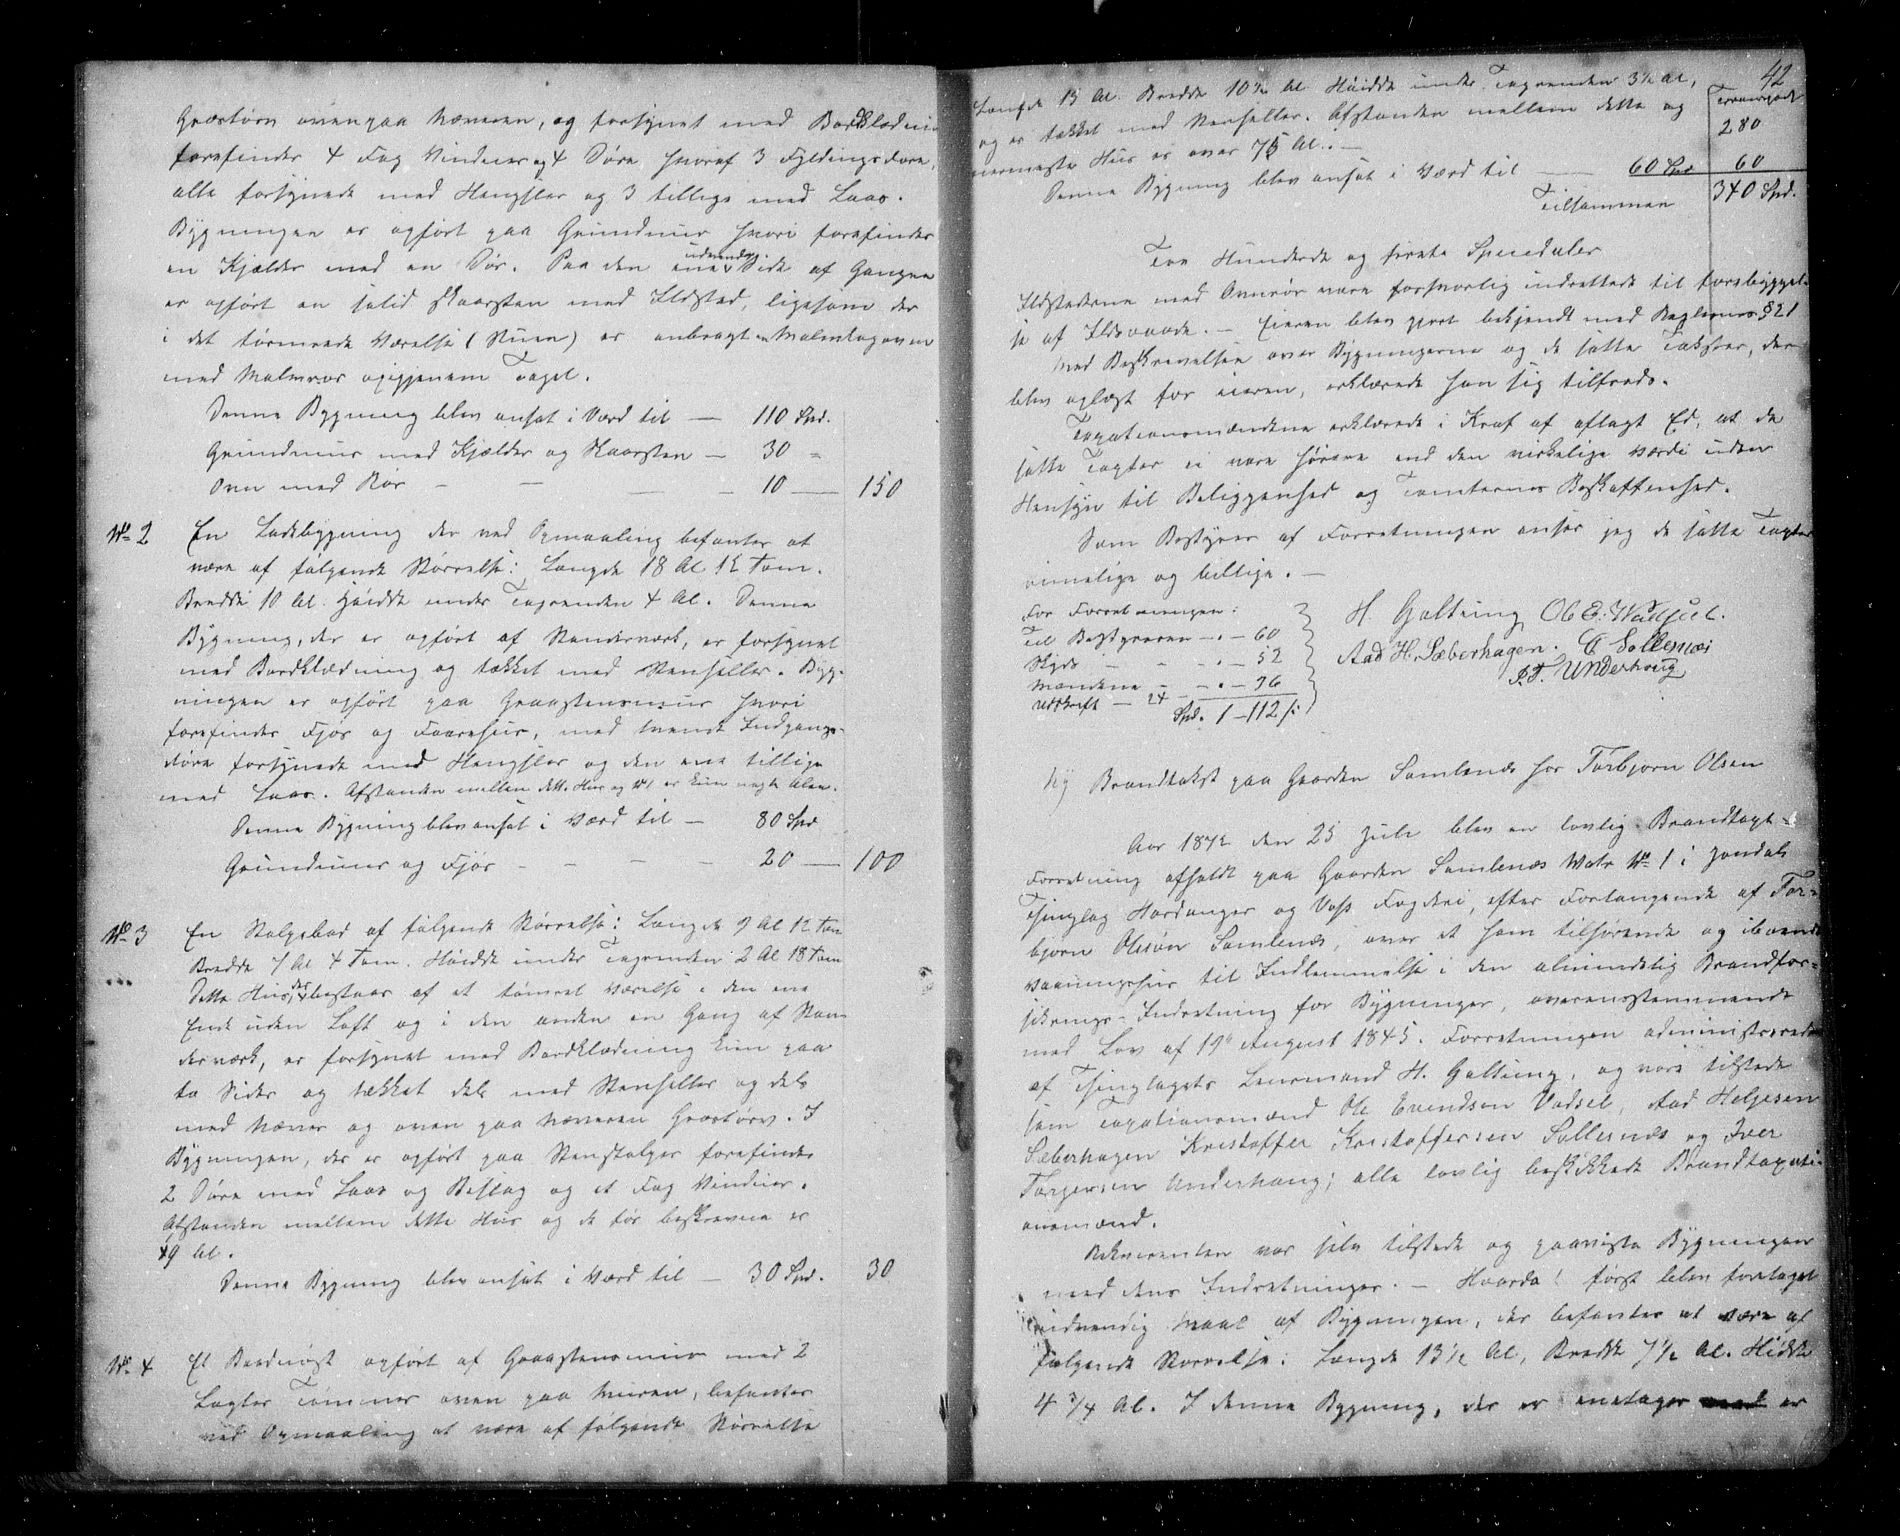 Græstørv ovenpaa Næveren, og forsynet med Bordklædning
forefindes 4 Fag Vinduer og 4 Døre hvoraf 3 Fyldingsdøre,
alle forsynede med Hengsler og 3 tillige med Laas.
Bygningen er opført paa Grundmur hvori forefindes
en Kjælder med en Dør. Paa den ene udvendig Side af Gangen
er opført en solid Skaarsten med Ildsted, ligesom der
i det tømrede Værelse (Stuen) er anbragt en Malmetagovn
med Malmrør op igjennem Taget.
Denne Bygning blev ansat i Værd til — 110 Spd.
Grundmur med Kjælder og Skaarsten — 30 "
Ovn med Rør — — — 10 — 150
No 2 En Ladebygning der ved Opmaaling befantes at
være af følgende Størrelse: Længde 18 Al 12 Tom.
Bredde 10 Al. Høidde under Tagrenden 4 Al. Denne
Bygning, der er opført af Standerværk, er forsynet
med Bordklædning og tækket med Stenheller. Byg-
ningen er opført paa Graastensmur hvori
forefindes Fjøs og Faarehus, med tvende Indgangs-
døre forsynede med Hengsler og den ene tillige
med Laas. Afstanden mellem dette Hus og No 1 er kun nogle Alen.
Denne Bygning blev ansat i Værd til — 80 Spd
Grundmur og Fjøs — — — 20 — 100
No 3 En Stolpebod af følgende Størrelse: Længde 9 Al 12 Tom
Bredde 7 Al 4 Tom. Høidde under Tagrenden 2 Al 18 Tom
Dette Hus, der bestaar af et tømret Værelse i den ene
Ende uden Loft og i den anden en Gang af Stan-
derværk, er forsynet med Bordklædning kun paa
to Sider og tækket dels med Stenheller og dels
med Næver og oven paa Næveren Græstørv. I
Bygningen, der er opført paa Stenstolper forefindes
2 Døre med Laas og Beslag og et Fag Vinduer.
Afstanden mellem dette Hus og de før beskrevne er
49 Al.
Denne Bygning blev ansat i Værd til — 30 Spd. 30
No 4 Et Baadnøst opført af Graastensmur med 2
Lagter Tømmer oven paa Muren, befantes
ved Opmaaling at være af følgende Størrelse
42
Længde 15 Al. Bredde 10½ Al. Høidde under Tagrenden 3½ Al,
og er tækket med Stenheller. Afstanden mellem dette og
nærmeste Hus er over 75 Al. —
Transport
280
Denne Bygning blev ansat i Værd til — 60 Spd 60
Tilsammen 340 Spd.
Tre Hundrede og firti Speciedaler
Ildstederne med Ovnrør vare forsvarlig indrettede til forebyggel-
se af Ildsvaade. — Eieren blev gjort bekjendt med Reglernes § 21
Med Beskrivelsen over Bygningerne og de satte Takster, der
blev oplæst for eieren, erklærede han sig tilfreds.
Taxationsmændene erklærede i Kraf af aflagt Ed, at de
satte Taxter ei vare høiere end den virkelige Værdi uden
Hensyn til Beliggenhed og Tomternes Beskaffenhed.
Som Bestyrer af Forretningen anser jeg de satte Taxter
rimelige og billige. —
For Forretningen:
Til Bestyreren — „ — 60
Skyds — — „ — 52
Mændene — — „ — 96
Udskrift — 24
Spd. 1 — 112 s
H. Galtung Ole E: Wadsel.
Aad H. Sæberhagen. C Sollesnæs
I. T. Underhoug
Ny Brandtakst paa Gaarden Samlenæs hos Torbjørn Olsen
Aar 1872 den 25 Juli blev en lovlig Brandtaxt-
Forretning afholdt paa Gaarden Samlenæs Matr No 1 i Jondals
Thinglag Hardanger og Voss Fogderi, efter Forlangende af Tor-
bjørn Olsen Samlenæs, over et ham tilhørende og iboende
vaaningshus til Indlemmelse i den almindelig Brandfor-
sikrings-Indretning for Bygninger, overensstemmende
med Lov af 19de August 1845. Forretningen administreredes
af Thinglagets Lensmand H. Galtung, og vare tilstede
som Taxationsmænd Ole Evendsen Vadsel, Aad Helgesen
Sæberhagen Kristoffer Kristoffersen Sollesnæs og Iver
Torgersen Underhaug; alle lovlig beskikkede Brandtaxati-
onsmænd.
Rekvirenten var selv tilstede og paaviste Bygningen
med dens Indretninger. — Hvorda! først blev foretaget
udvendig Maal af Bygningen, der befantes at være af
følgende Størrelse: Længde 13½ Al, Bredde 7½ Al. Hødde
4 3/4 Al. I denne Bygning, der er enetages er